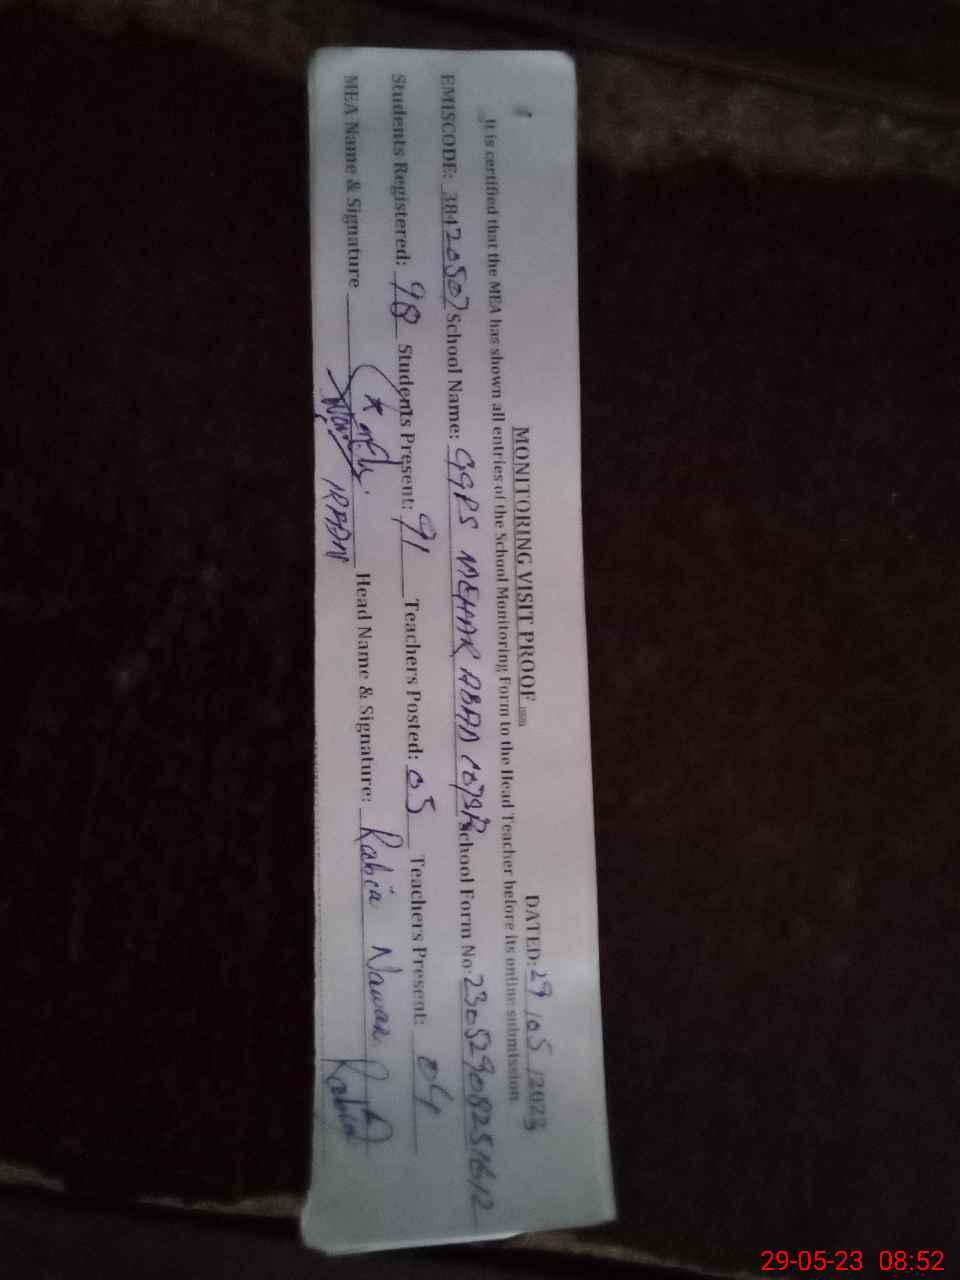 MONITORING VISIT PROOF
DATED: 29/05/2023
It is certified that the MEA has shown all entries of the School Monitoring Form to the Head Teacher before its online submission
EMISCODE: 38420507 School Name: GGPS MEHAR ABAD School Form No: 23052908251612
Students Registered: 98 Students Present: 91 Teachers Posted: 05 Teachers Present: 04
MEA Name & Signature Head Name & Signature: Rabia Nawaz Rabia
29-05-23 08:52